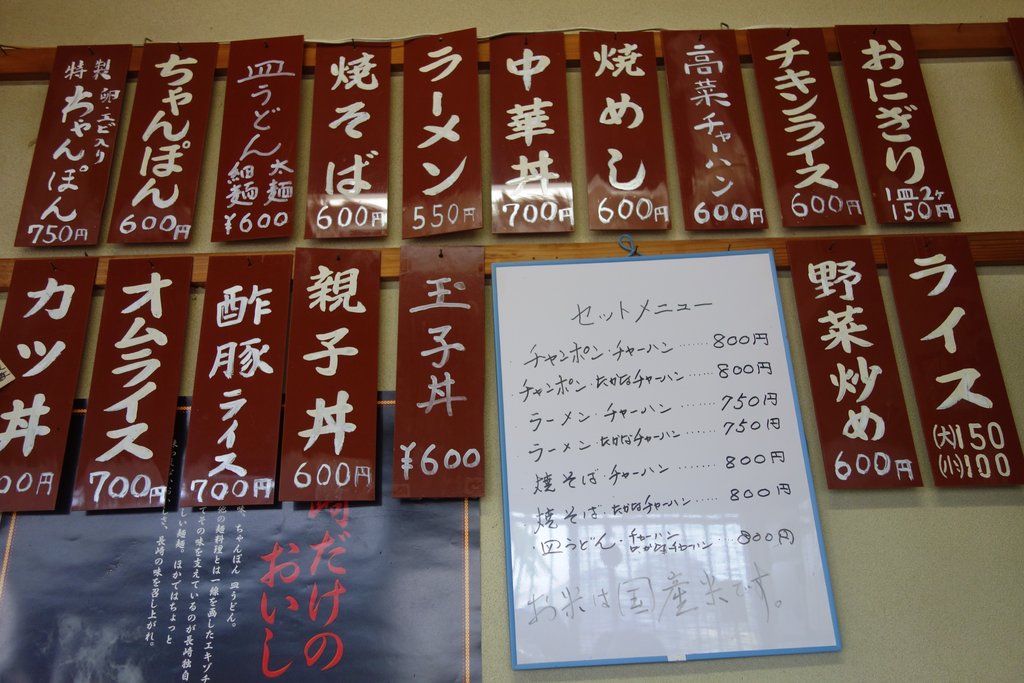 特製 卵・エビ入り ちゃんぽん 750円
ちゃんぽん 600円
皿うどん 太麺 細麺 ¥600
焼そば 600円
ラーメン 550円
中華丼 700円
焼めし 600円
高菜チャーハン 600円
チキンライス 600円
おにぎり 1皿2ヶ 150円
カツ丼 00円
オムライス 700円
酢豚ライス 700円
親子丼 600円
玉子丼 ¥600
セットメニュー
・チャンポン・チャーハン……800円
・チャンポン・たかなチャーハン……800円
・ラーメン・チャーハン……750円
・ラーメン・たかなチャーハン……750円
・焼そば・チャーハン……800円
・焼そば・たかなチャーハン……800円
・皿うどん・チャーハン たかなチャーハン……800円
お米は国産米です。
野菜炒め 600円
ライス (大)150 (小)100
崎だけの
おいし
味、ちゃんぽん 皿うどん。
他の麺料理とは一線を画したエキゾチ
てその味を支えているのが長崎独自
しい麺。ほかではちょっと
しさ、長崎の味を召し上がれ。